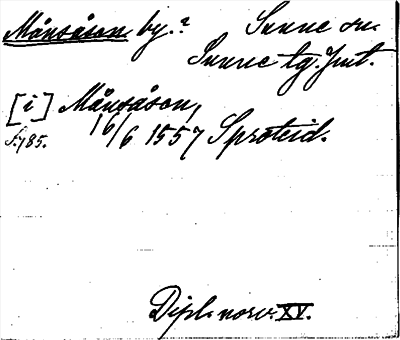 Månsåsen by.? Sunne sn.
Sunne tg. Jmt.
[i] Månsåsen,
s. 785. 16/6 1557 Sproteid.
Dipl. norv. XV.